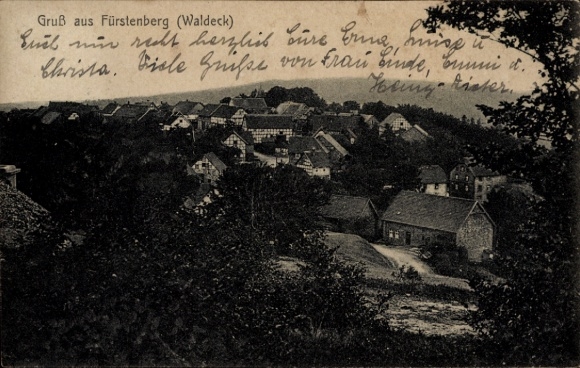 Gruß aus Fürstenberg (Waldeck)
Euch nun recht herzlich Eure Erna, Luise u
Christa. Viele Grüße von Frau Linde, Emmi u.
Heinz-Dieter.